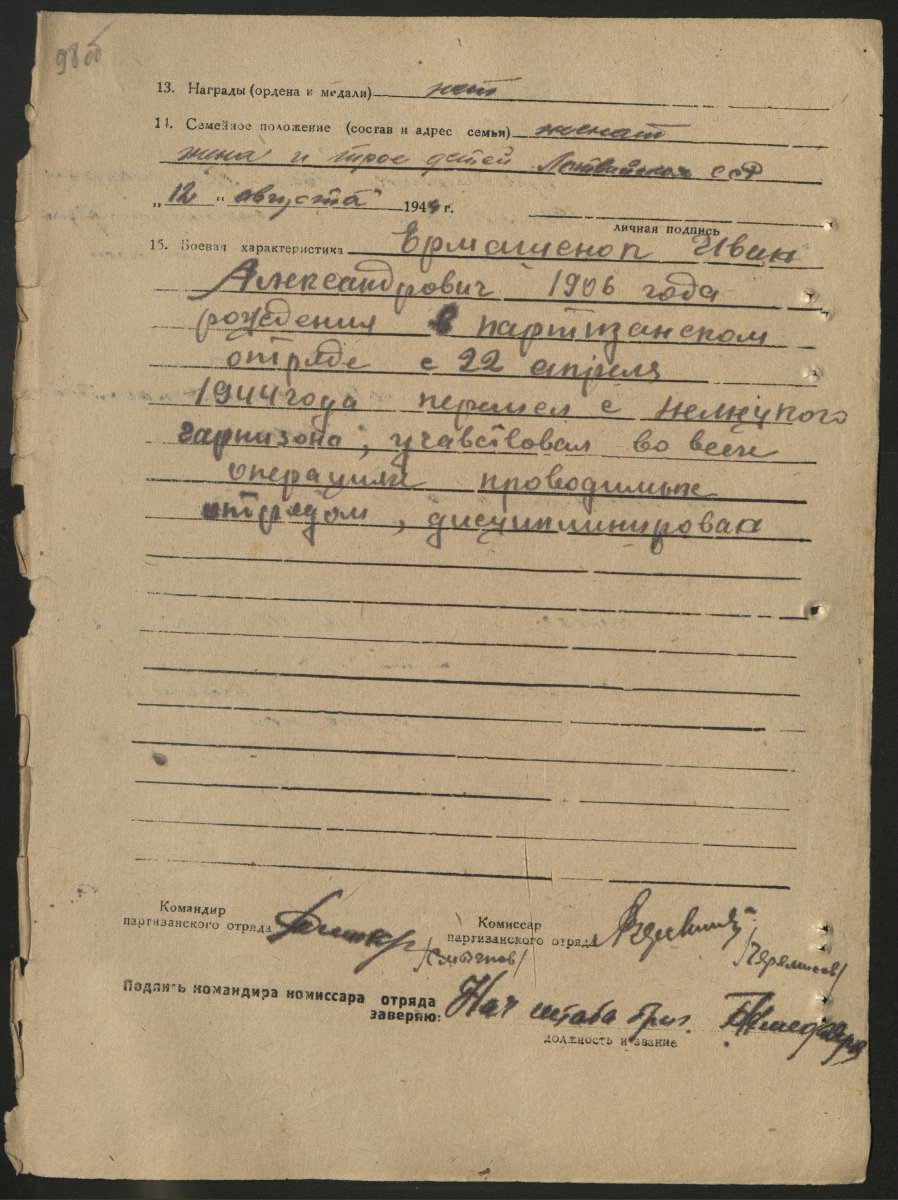 98об
13. Награды (ордена и медали) нет
14. Семейное положение (состав и адрес семьи) женат
жена и трое детей Латвийская ССР
„12" августа 1944 г.
личная подпись
15. Боевая характеристика Ермаченок Иван
Александрович 1906 года
рождения в партизанском
отряде с 22 апреля
1944 года перешел с немецкого
гарнизона, учавствовал во всех
операциях проводимых
отрядом, дисциплинирован
Командир
партизанского отряда
/Смычков/
Комиссар
партизанского отряда
/Черемисов/
Подпись командира комиссара отряда
заверяю: Нач штаба бриг.
должность и звание